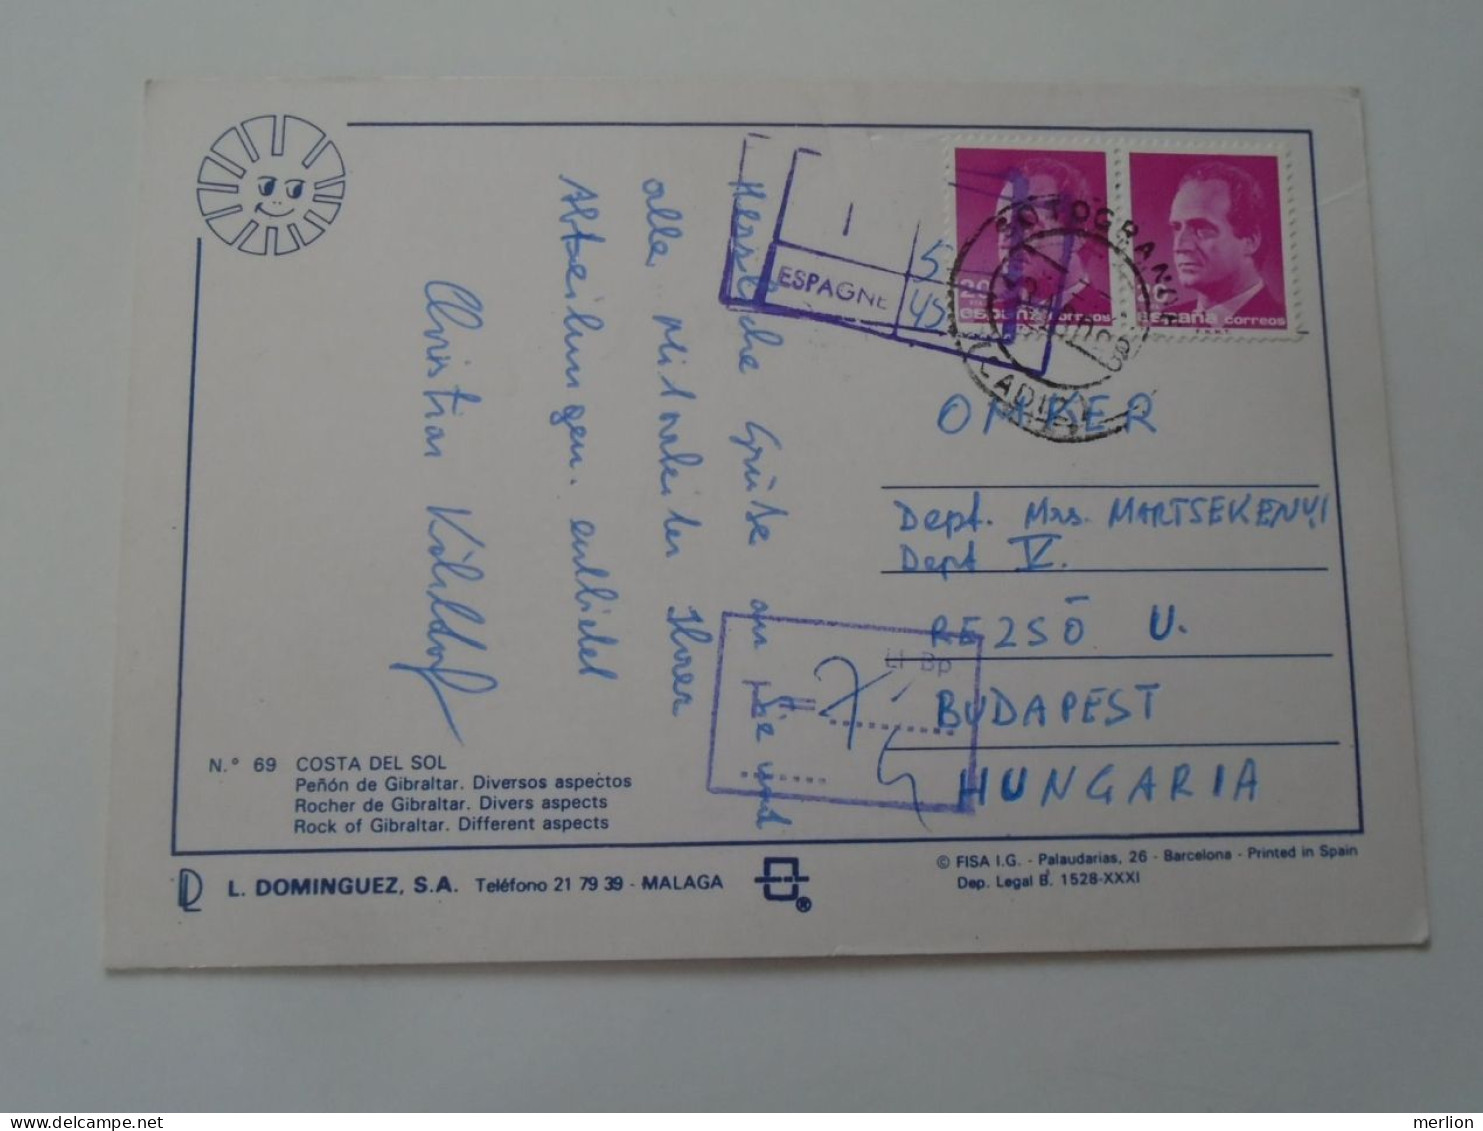 Herzliche Grüße an Sie und
alle Mitarbeiter Ihrer
Abteilungen. entbietet
Christian
ESPAGNE
1
5
45
20
españa correos
España correos
SOTOGRANDE
CADIZ
OMKER
Dept. Mrs. MARTSEKENYI
Dept V.
REZSŐ U.
BUDAPEST
HUNGARIA
LI Bp
N.° 69 COSTA DEL SOL
Peñón de Gibraltar. Diversos aspectos
Rocher de Gibraltar. Divers aspects
Rock of Gibraltar. Different aspects
L. DOMINGUEZ, S.A. Teléfono 21 79 39 - MALAGA
© FISA I.G. - Palaudarias, 26 - Barcelona - Printed in Spain
Dep. Legal B. 1528-XXXI
merlion